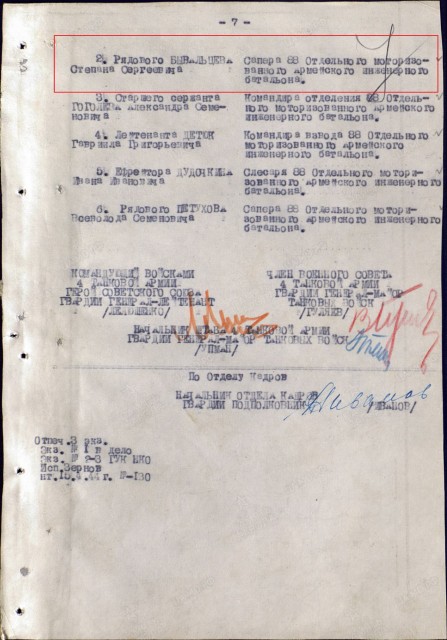 - 7 -
2. Рядового БЫВАЛЬЦЕВА Степана Сергеевича
Сапера 88 Отдельного моторизованного Армейского инженерного батальона.
3. Старшего сержанта ГОГОЛЕВА Александра Семеновича
Командира отделения 88 Отдельного моторизованного Армейского инженерного батальона.
4. Лейтенанта ДЕТОК Гавриила Григорьевича
Командира взвода 88 Отдельного моторизованного Армейского инженерного батальона.
5. Ефрейтора ДУДОЧКИНА Ивана Ивановича
Слесаря 88 Отдельного моторизованного Армейского инженерного батальона.
6. Рядового ПЕТУХОВА Всеволода Семеновича
Сапера 88 Отдельного моторизованного Армейского инженерного батальона.
КОМАНДУЮЩИЙ ВОЙСКАМИ
4 ТАНКОВОЙ АРМИИ
ГЕРОЙ СОВЕТСКОГО СОЮЗА
ГВАРДИИ ГЕНЕРАЛ-ЛЕЙТЕНАНТ
/ЛЕЛЮШЕНКО/
ЧЛЕН ВОЕННОГО СОВЕТА
4 ТАНКОВОЙ АРМИИ
ГВАРДИИ ГЕНЕРАЛ-МАЙОР
ТАНКОВЫХ ВОЙСК
/ГУЛЯЕВ/
НАЧАЛЬНИК ШТАБА 4 ТАНКОВОЙ АРМИИ
ГВАРДИИ ГЕНЕРАЛ-МАЙОР ТАНКОВЫХ ВОЙСК
/УПМАН/
По Отделу Кадров
НАЧАЛЬНИК ОТДЕЛА КАДРОВ
ГВАРДИИ ПОДПОЛКОВНИК
/ИВАНОВ/
Отпеч. 3 экз.
Экз. № 1 в дело
Экз. № 2-3 ГУК НКО
Исп. Зернов
нт. 15.4.44 г. №-130